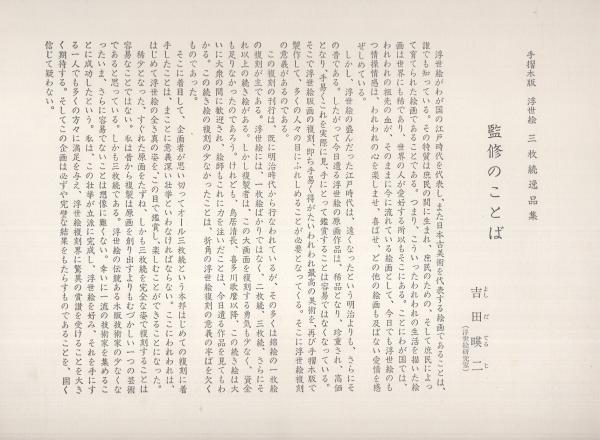 手摺木版 浮世絵 三枚続逸品集
監修のことば
吉田暎二
よしだてるじ
(浮世絵研究家)
浮世絵がわが国の江戸時代を代表し、また日本古美術を代表する絵画であることは、
誰でも知っている。その特質は庶民の間に生まれ、庶民のための、そして庶民によっ
て育てられた絵画であることである。つまり、こういったわれわれの生活を描いた絵
画は世界にも稀であり、世界の人が愛好する所以もそこにある。ことにわが国では、
われわれの祖先の血が、そのままに今に流れている絵画として、今日でも浮世絵のも
つ情操情感は、われわれの心を楽しませ、喜ばせ、どの他の絵画も及ばない愛情を感
ぜしめている。
しかし、浮世絵の盛んだった江戸時代は、遠くなったという明治よりも、さらにそ
の昔である。したがって今日遺る浮世絵の原画作品は、稀品となり、珍重され、高価
となり、手易くこれを実際に見、手にとって鑑賞することは容易ではなくなっている。
そこで浮世絵版画の復刻、即ち手易く得がたいわれわれ最高の美術を、再び手摺木版で
製作して、多くの人々の目にふれしめることが必要となってくる。そこに浮世絵復刻
の意義があるのである。
この復刻の刊行は、既に明治時代から行なわれているが、その多くは錦絵の一枚絵
の復刻が主である。浮世絵には、一枚絵ばかりではなく、二枚続、三枚続、さらにそ
れ以上の続き絵がある。しかし複製者は、この大画面を復刻する勇気も少なく、資金
も足りなかったのであろう。けれども、鳥居清長、喜多川歌麿以降、この続き絵は大
いに大衆の間に歓迎され、絵師もこれに力を注いだことは、今日遺る作品を見てもわ
かる。この続き絵の復刻の少なかったことは、折角の浮世絵復刻の意義の半ばを欠く
ものであった。
そこに着目して、企画者が思い切ってオール三枚続という本邦はじめての復刻に着
手したことは、まことに意義深い壮挙といわなければならない。ここにわれわれは、
はじめて浮世絵の全き真の姿をこの目で鑑賞し、楽しむことができることになった。
稀少となった、すぐれた原画をたずね、しかも三枚続を完全な姿で復刻することは
容易なことではない。私は昔から複製は原画を創り出すよりもむづかしい一つの芸術
であると思っている。しかも三枚続である。浮世絵の伝統ある木版技術家の少なくな
ったいま、さらに容易でないことは想像に難くない。幸いに一流の技術家を集めるこ
とに成功したという。私は、この壮挙が立派に完成し、浮世絵を好み、それを手にす
る一人でも多くの方々に満足を与え、浮世絵複刻界に驚異の賞讃を受けることを大き
く期待する。そしてこの企画は必ずや完璧な結果をもたらすものであることを、固く
信じて疑わない。